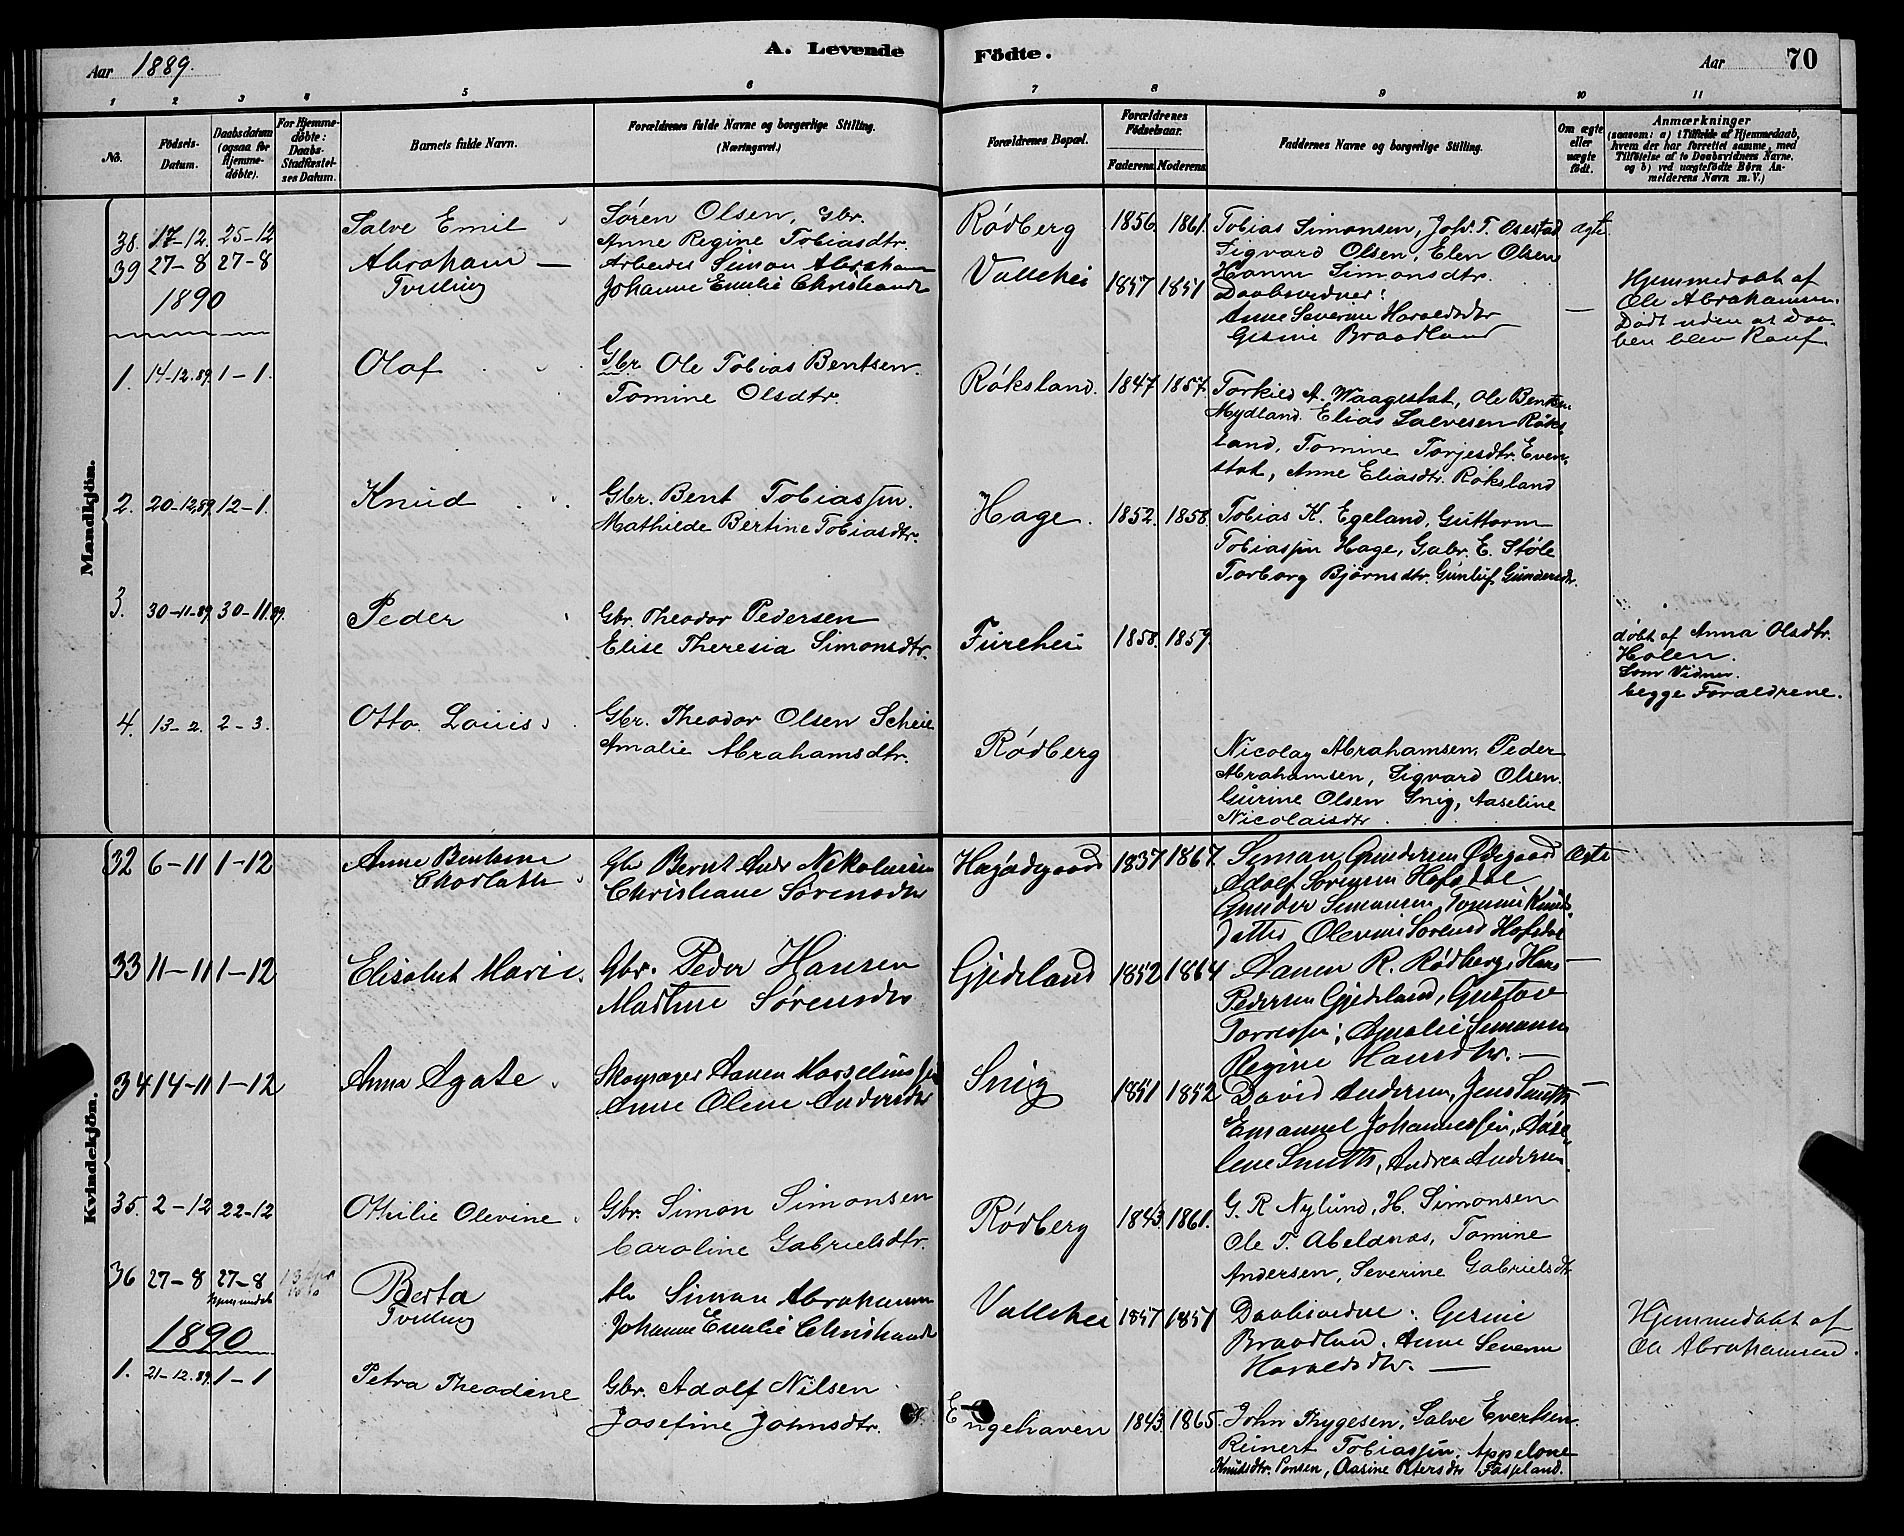 Aar 1889.
A. Levende
Födte.
Aar
70
1 2 3 4 5 6 7 8 9 10 11
No.
Födsels-
Datum.
Daabsdatum
(ogsaa for
Hjemme-
döbte).
For Hjemme-
döbte:
Daabs-
Stadfæstel-
ses Datum.
Barnets fulde Navn.
Forældrenes fulde Navne og borgerlige Stilling.
(Næringsvei.)
Forældrenes Bopæl.
Forældrenes
Födselsaar.
Faderens.
Moderens.
Faddernes Navne og borgerlige Stilling.
Om ægte
eller
uægte
født.
Anmærkninger
(saasom: a) i Tilfælde af Hjemmedaab,
hvem der har forrettet samme, med
Tilföielse af to Daabsvidners Navne,
og b) ved uægtefödte Börn An-
melderens Navn m. V.)
Mandkjön.
38. 17-12. 25-12 Salve Emil
Søren Olsen, Gbr.
Anne Regine Tobiasdtr.
Rødberg 1856. 1861.
Tobias Simonsen, Joh. T. Osestad
Sigvard Olsen, Elen Olsen
Hanne Simonsdtr.
ægte
39 27-8 27-8 Abraham
Tvilling
Arbeider Simon Abrahamsen
Johanne Emilie Christiansdtr
Vallehei 1857 1851
Daabsvidner:
Anne Severine Haraldsdtr
Gesine Braadland
Hjemmedøbt af
Ole Abrahamsen.
Dødt uden at Daa-
ben blev Konf.
1890
1. 14-12.89. 1-1. Olaf
Gbr. Ole Tobias Bentsen.
Tomine Olsdtr.
Røksland. 1847. 1857.
Torkild A. Waagestat, Ole Bentsen
Mydland. Elias Salvesen Røks-
land, Tomine Torjesdtr. Even-
stat, Anne Eliasdtr. Røksland
2. 20-12.89. 12-1. Knud
Gbr. Bent Tobiassen.
Mathilde Bertine Tobiasdtr.
Hage. 1852. 1858.
Tobias K. Egeland, Guttorm
Tobiassen Hage, Gabr. E. Støle
Torborg Bjørnsdtr. Gunluf Gundersdtr.
3. 30-11-89. 30-11.89. Peder
Gbr. Theodor Pedersen
Elise Theresia Simonsdtr.
Furehei 1858. 1859.
døbt af Anna Olsdtr.
Holen.
Som Vidner.
begge Forældrene.
4. 13-2. 2-3. Otto Louis
Gbr. Theodor Olsen Scheie
Amalie Abrahamsdtr.
Rødberg
Nicolay Abrahamsen, Peder
Abrahamsen, Sigvard Olsen.
Gurine Olsen Snig, Aaseline
Nicolaisdtr.
Kvindekjön.
32 6-11 1-12 Anne Bentsine
Charlotte
Gbr Bernt Andr Nikolaisen
Christiane Sørensdtr
1837 1867.
Simon Gundersen Ødegaard
Adolf Sørensen Hofstøl
Gunder Simonsen, Tomine Knuds-
datter Olevine Sørensd Hofstøl
Ægte
33 11-11 1-12 Elisabet Marie.
Gbr. Peder Hansen
Martine Sørensdtr
Gjideland 1852 1864
Aanen R. Rødberg, Hans
Pedersen Gjideland, Gustav
Torressen; Amalie Simonsen
Regine Hansdtr. —
34 14-11 1-12 Anna Agate
Skomager Aanen Marseliussen
Anne Olene Andersdtr
Snig 1851 1852
David Andersen, Jens Smith
Emanuel Johannessen, Aase-
lene Smith, Andrea Andersen
35. 2-12 22-12 Othilie Olevine
Gbr. Simon Simonsen
Caroline Gabrielsdtr.
Rødberg 1843. 1861.
G. R Nylund, H. Simonsen
Ole T. Abeldnæs, Tomine
Andersen, Severine Gabrielsdtr
36 27-8 27-8
Hjemmedøbt
Berta
Tvilling
Arb Simon Abrahamsen
Johanne Emilie Christiansdtr
Vallehei 1857 1851
Daabsvidne: Gesine
Braadland. Anne Severine
Haraldsdtr. —
Hjemmedøbt af
Ole Abrahamsen.
1890
1. 21-12.89. 1-1 Petra Theodine
Gbr. Adolf Nilsen
Josefine Johnsdtr.
Engehaven 1843. 1865.
John Thygesen, Salve Evertsen
Reinert Tobiassen, Appelone
Knutsdtr. Ponsen, Aasine Petersdtr Faseland.